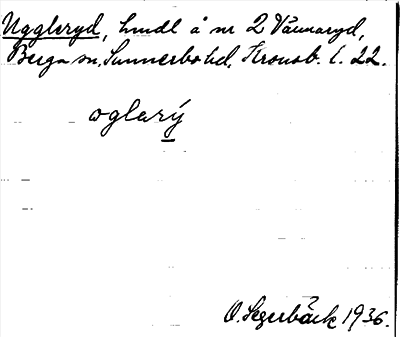 Uggleryd, hmdl å nr 2 Vännaryd,
Berga sn, Sunnerbo hd, Kronob. l. 22.
oglarý
O. Segerbäck 1936.